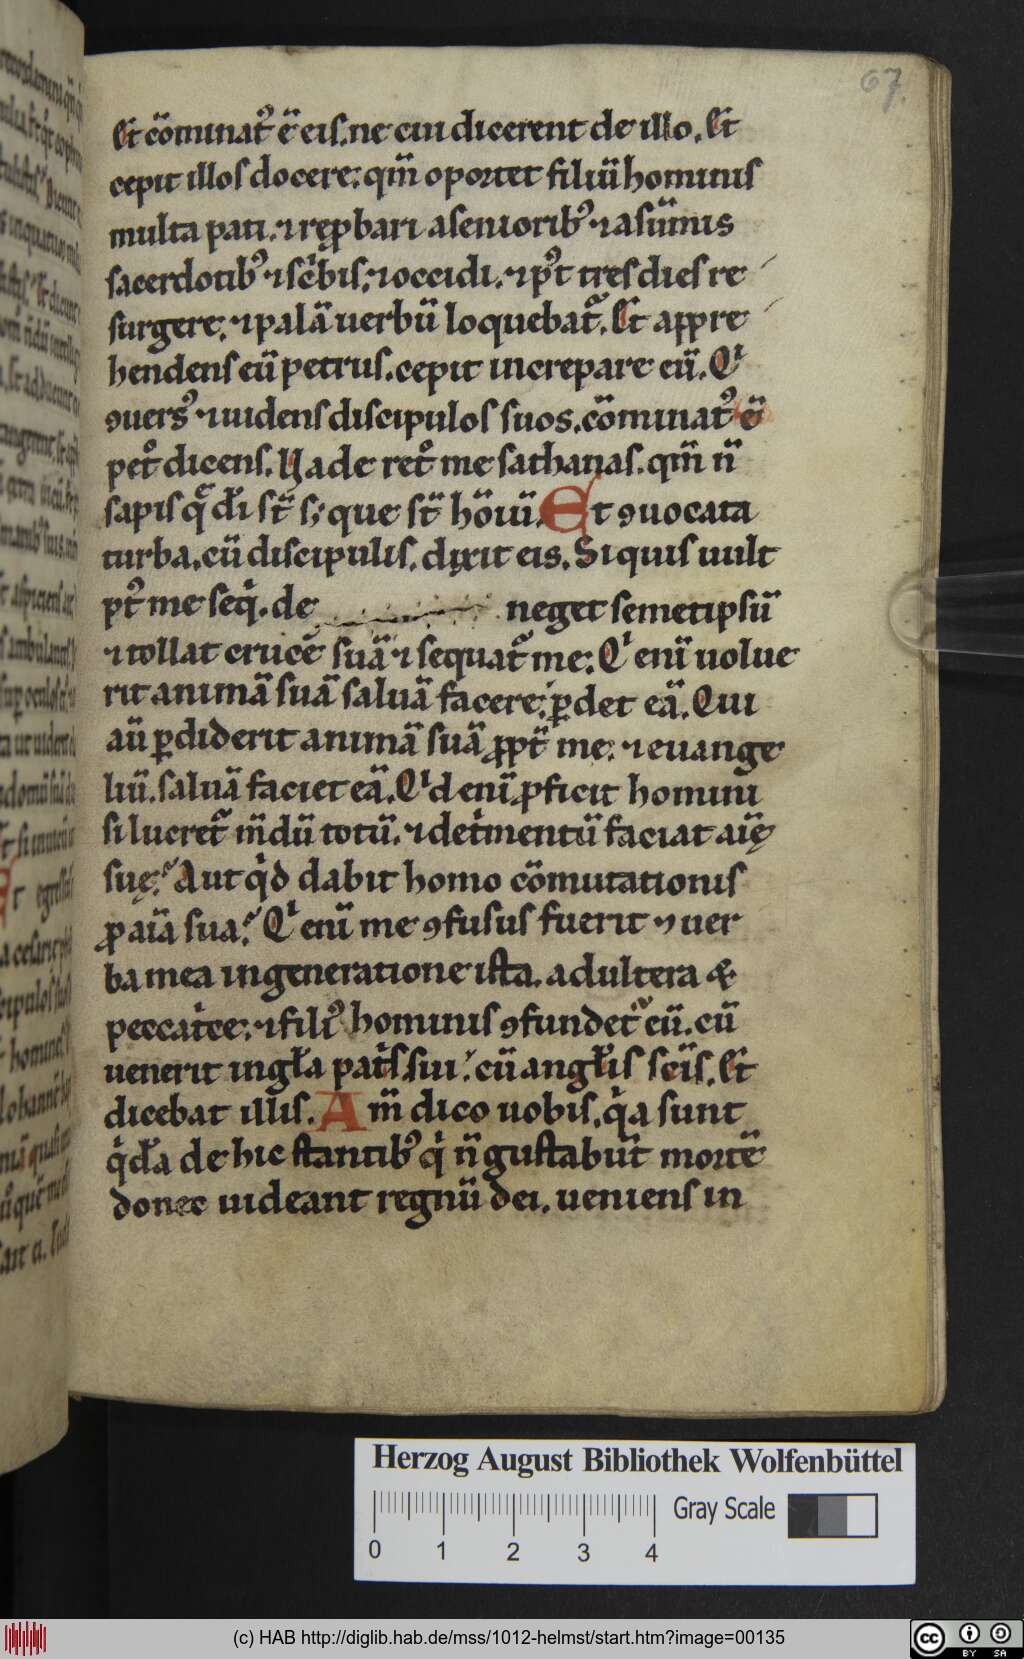 67.
Et cōminatꝰ ē eis. ne cui dicerent de illo. Et
cepit illos docere; qm̄ oportet filiū hominis
multa pati. ⁊ rep̱bari a senioribꝰ ⁊ a sūmis
sacerdotibꝰ ⁊ sc̄bis; ⁊ occidi. ⁊ pꝰt tres dies re
surgere; ⁊ palā uerbū loquebat᷑. Et appre
hendens eū petrus. cepit increpare eū. Qͥ
ꝯuersꝰ ⁊ uidens discipulos suos. cōminatꝰ ē
petͦ dicens. Uade retͦ me sathanas. qm̄ n̄
sapis qͣ dı̄ st̄ s; que st̄ hōiū. Et ꝯuocata
turba. cū discipulis. dixit eis. Si quis uult
pꝰt me seqͥ. de neget semetipsū
⁊ tollat crucē suā ⁊ sequat᷑ me; Qͥ enī uolue
rit animā suā saluā facere; ꝑdet eā. Qui
aū ꝑdiderit animā suā ꝓpt̄ me; ⁊ euange
liū. saluā faciet eā. Qͥd enī ꝓficit homini
si lucret᷑ m̄dū totū. ⁊ detͥmentū faciat aīę
suę? Aut qͥd dabit homo cōmutationis
ꝓ aīa sua? Qͥ enī me ꝯfusus fuerit ⁊ uer
ba mea in generatione ista. adultera &
peccatͥce; ⁊ filiꝰ hominis ꝯfundet᷑ eū. cū
uenerit in gła patͥs sui. cū angłis scīs. Et
dicebat illis. Am̄ dico uobis. qͥa sunt
qͥdā de hic stantibꝰ qͥ n̄ gustabūt mortē
donec uideant regnū dei. ueniens in
Herzog August Bibliothek Wolfenbüttel
Gray Scale
0 1 2 3 4
(c) HAB http://diglib.hab.de/mss/1012-helmst/start.htm?image=00135
cc BY SA